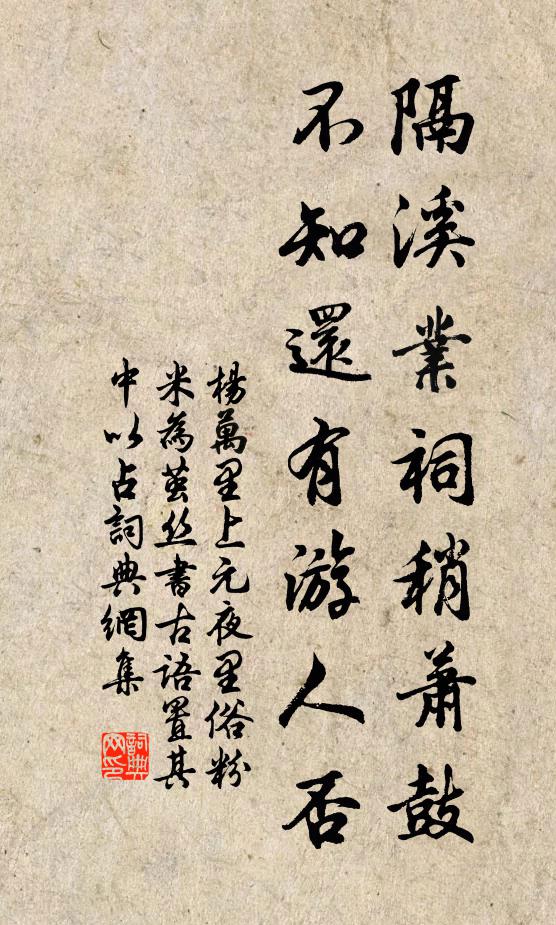 隔溪業祠稍蕭鼓
不知還有游人否
楊萬里上元夜里俗粉
米為茧丝書古語置其
中以占詞典網集
詞典
网印